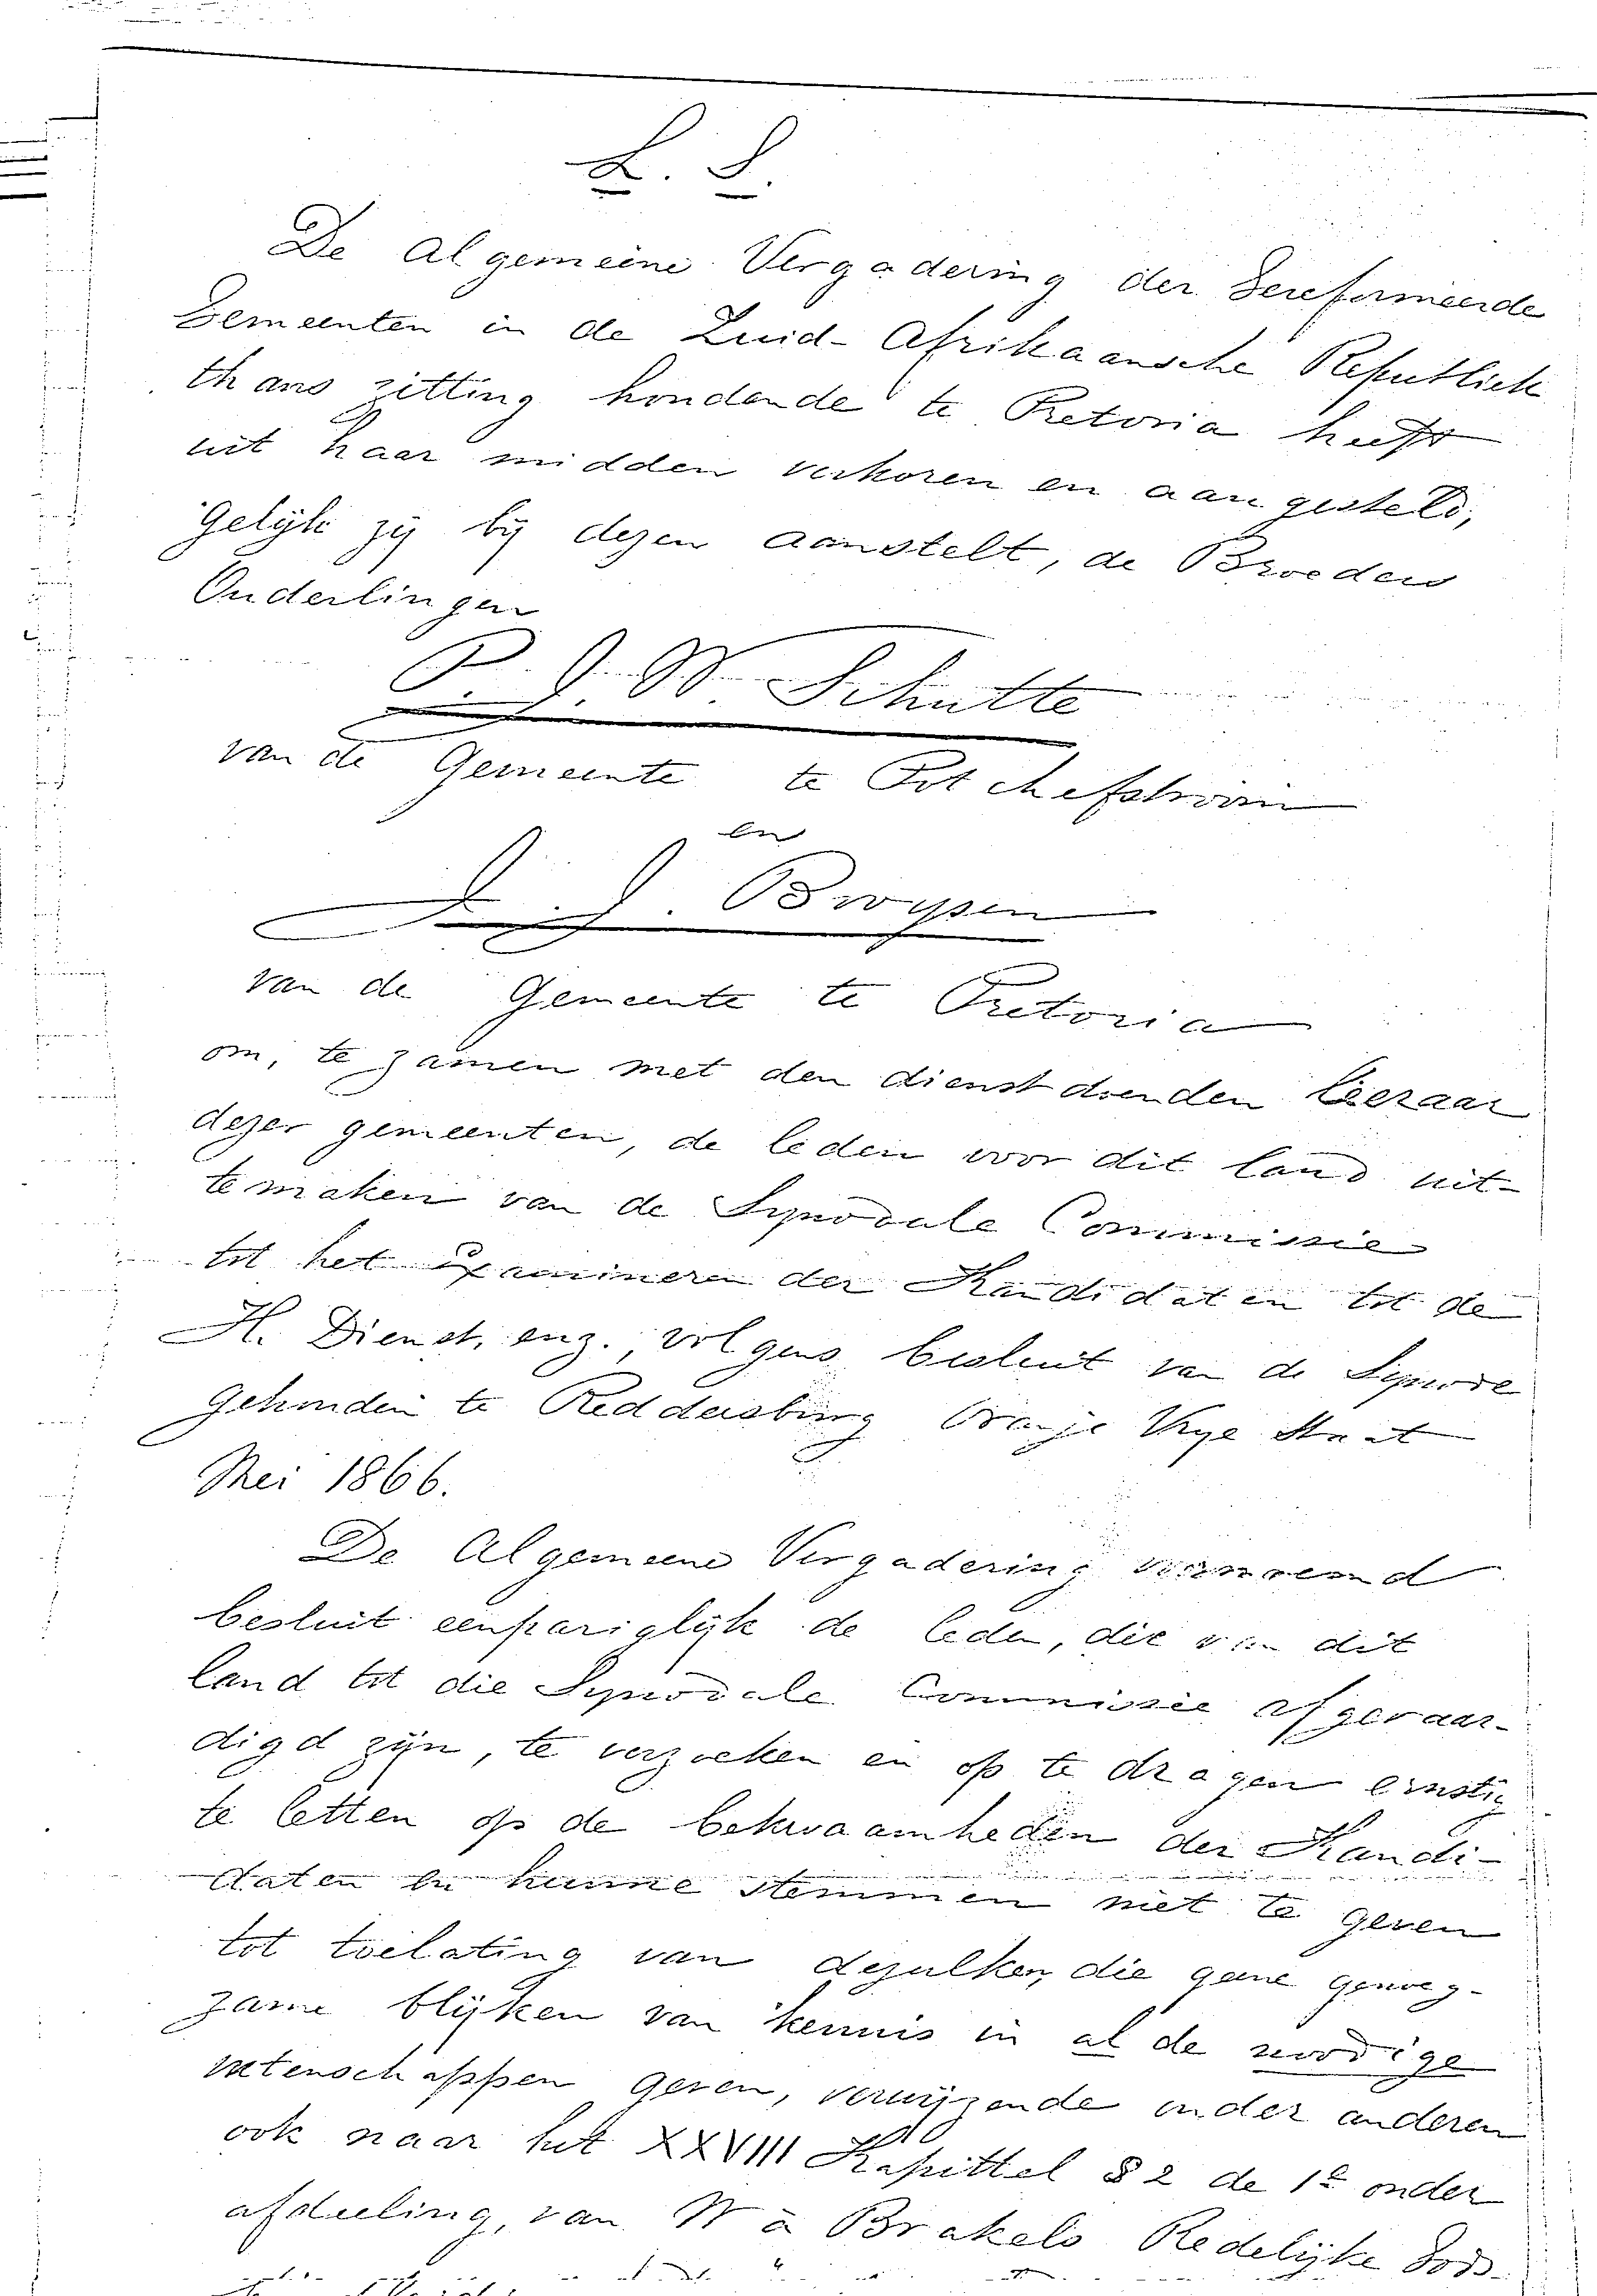 L. S.
De Algemeene Vergadering der Gereformeerde
Gemeenten in de Zuid-Afrikaansche Republiek
thans zitting houdende te Pretoria heeft
uit haar midden verkoren en aangesteld,
Gelijk zij bij dezen aanstelt, de Broeders
Ouderlingen
P. J. W. Schutte
van de Gemeente te Potchefstroom
en
J. J. Buysen
van de Gemeente te Pretoria
om, te zamen met den dienstdoenden Leeraar
dezer gemeenten, de leden voor dit land uit-
temaken van de Synodale Commissie
tot het Examineren der Kandidaten tot de
H. Dienst, enz., volgens besluit van de Synode
Gehouden te Reddersburg Oranje Vrye Staat
Mei 1866.
De Algemeene Vergadering voornoemd
besluit eenpariglijk de leden, die van dit
land tot die Synodale Commissie afgevaar-
digd zijn, te verzoeken en op te dragen ernstig
te letten op de bekwaamheden der Kandi-
daten en hunne stemmen niet te geven
tot toelating van dezulken, die geene genoeg-
zame blijken van kennis in al de noodige
wetenschappen geven, verwijzende onder anderen
ook naar het XXVIII Kapittel § 2 de 1e onder
afdeeling, van W à Brakels Redelijke Gods-